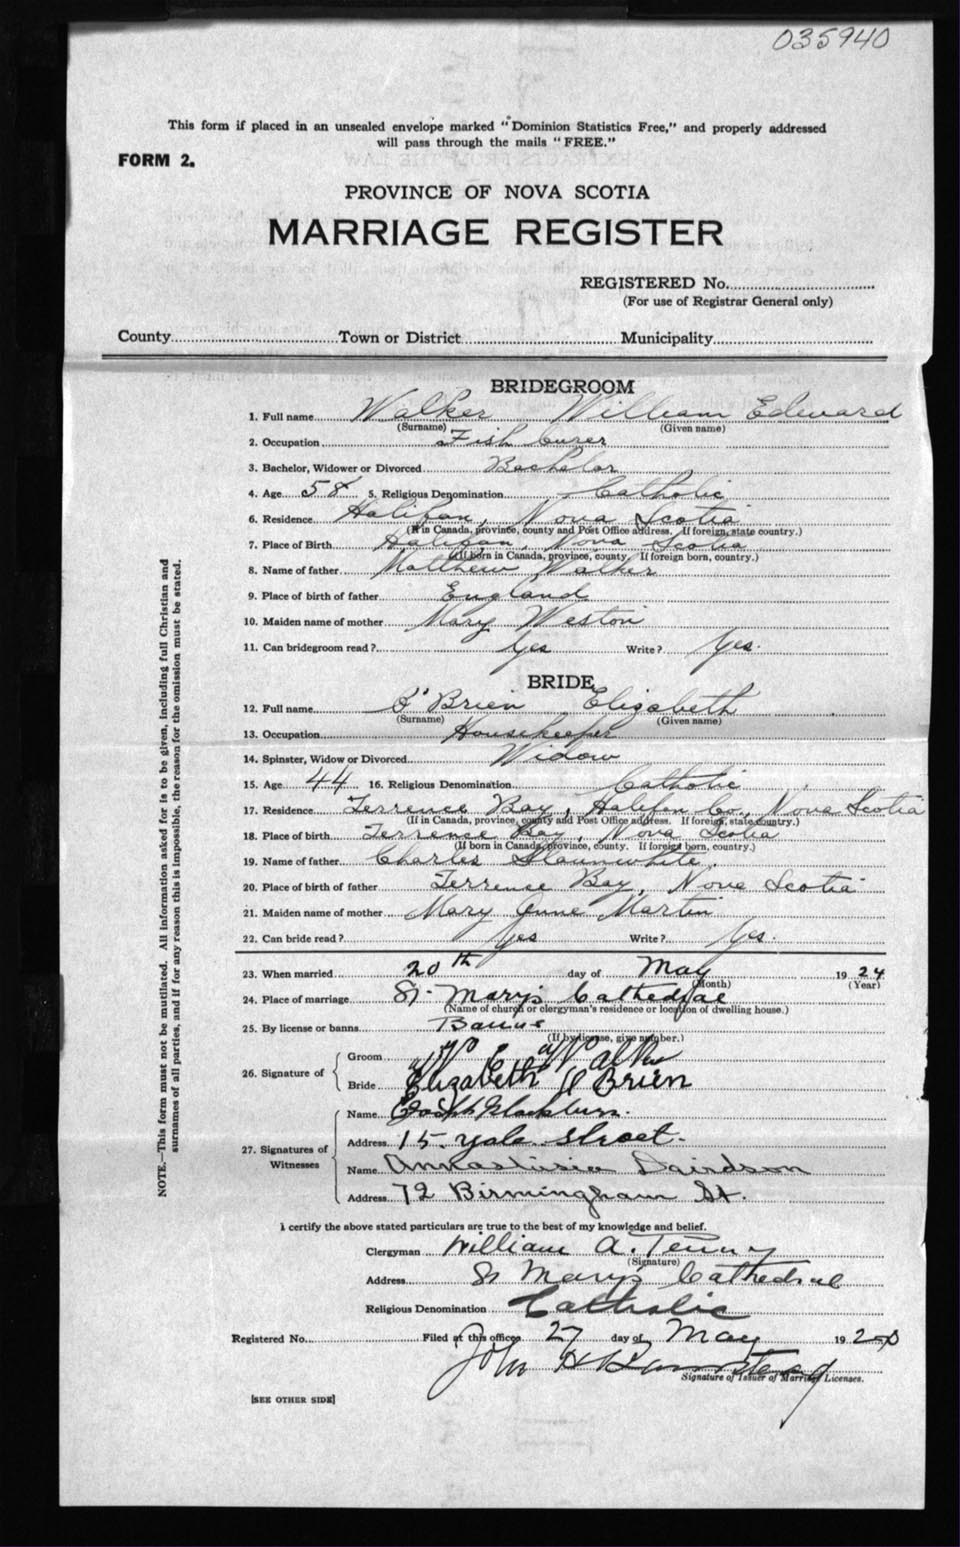 035940
This form if placed in an unsealed envelope marked "Dominion Statistics Free," and properly addressed
will pass through the mails "FREE."
FORM 2.
PROVINCE OF NOVA SCOTIA
MARRIAGE REGISTER
REGISTERED No.
(For use of Registrar General only)
County Town or District Municipality
BRIDEGROOM
1. Full name Walker William Edward
(Surname) (Given name)
2. Occupation Fish Curer
3. Bachelor, Widower or Divorced Bachelor
4. Age 58 5. Religious Denomination Catholic
6. Residence Halifax, Nova Scotia
(If in Canada, province, county and Post Office address. If foreign, state country.)
7. Place of Birth Halifax, Nova Scotia
(If born in Canada, province, county. If foreign born, country.)
8. Name of father Matthew Walker
9. Place of birth of father England
10. Maiden name of mother Mary Weston
11. Can bridegroom read? Yes Write? Yes.
BRIDE
12. Full name O'Brien Elizabeth
(Surname) (Given name)
13. Occupation Housekeeper
14. Spinster, Widow or Divorced Widow
15. Age 44 16. Religious Denomination Catholic
17. Residence Terrence Bay, Halifax Co., Nova Scotia
(If in Canada, province, county and Post Office address. If foreign, state country.)
18. Place of birth Terrence Bay, Nova Scotia
(If born in Canada, province, county. If foreign born, country.)
19. Name of father Charles Slaunwhite.
20. Place of birth of father Terrense Bay, Nova Scotia
21. Maiden name of mother Mary Anne Martin
22. Can bride read? Yes Write? Yes.
23. When married 20th day of May 1924
(Month) (Year)
24. Place of marriage St. Mary's Cathedral
(Name of church or clergyman's residence or location of dwelling house.)
25. By license or banns Banns
(If by license, give number.)
26. Signature of
Groom Walker
Bride Elizabeth O'Brien
27. Signatures of Witnesses
Name Joseph Blackburn.
Address 15 Yale Street.
Name Annastasia Davidson
Address 72 Birmingham St.
I certify the above stated particulars are true to the best of my knowledge and belief.
Clergyman William A. Penny
(Signature)
Address St Mary's Cathedral
Religious Denomination Catholic
Registered No. Filed at this office 27 day of May 192
John H Barnstead
Signature of Issuer of Marriage Licenses.
[SEE OTHER SIDE]
NOTE.—This form must not be mutilated. All information asked for is to be given, including full Christian and
surnames of all parties, and if for any reason this is impossible, the reason for the omission must be stated.